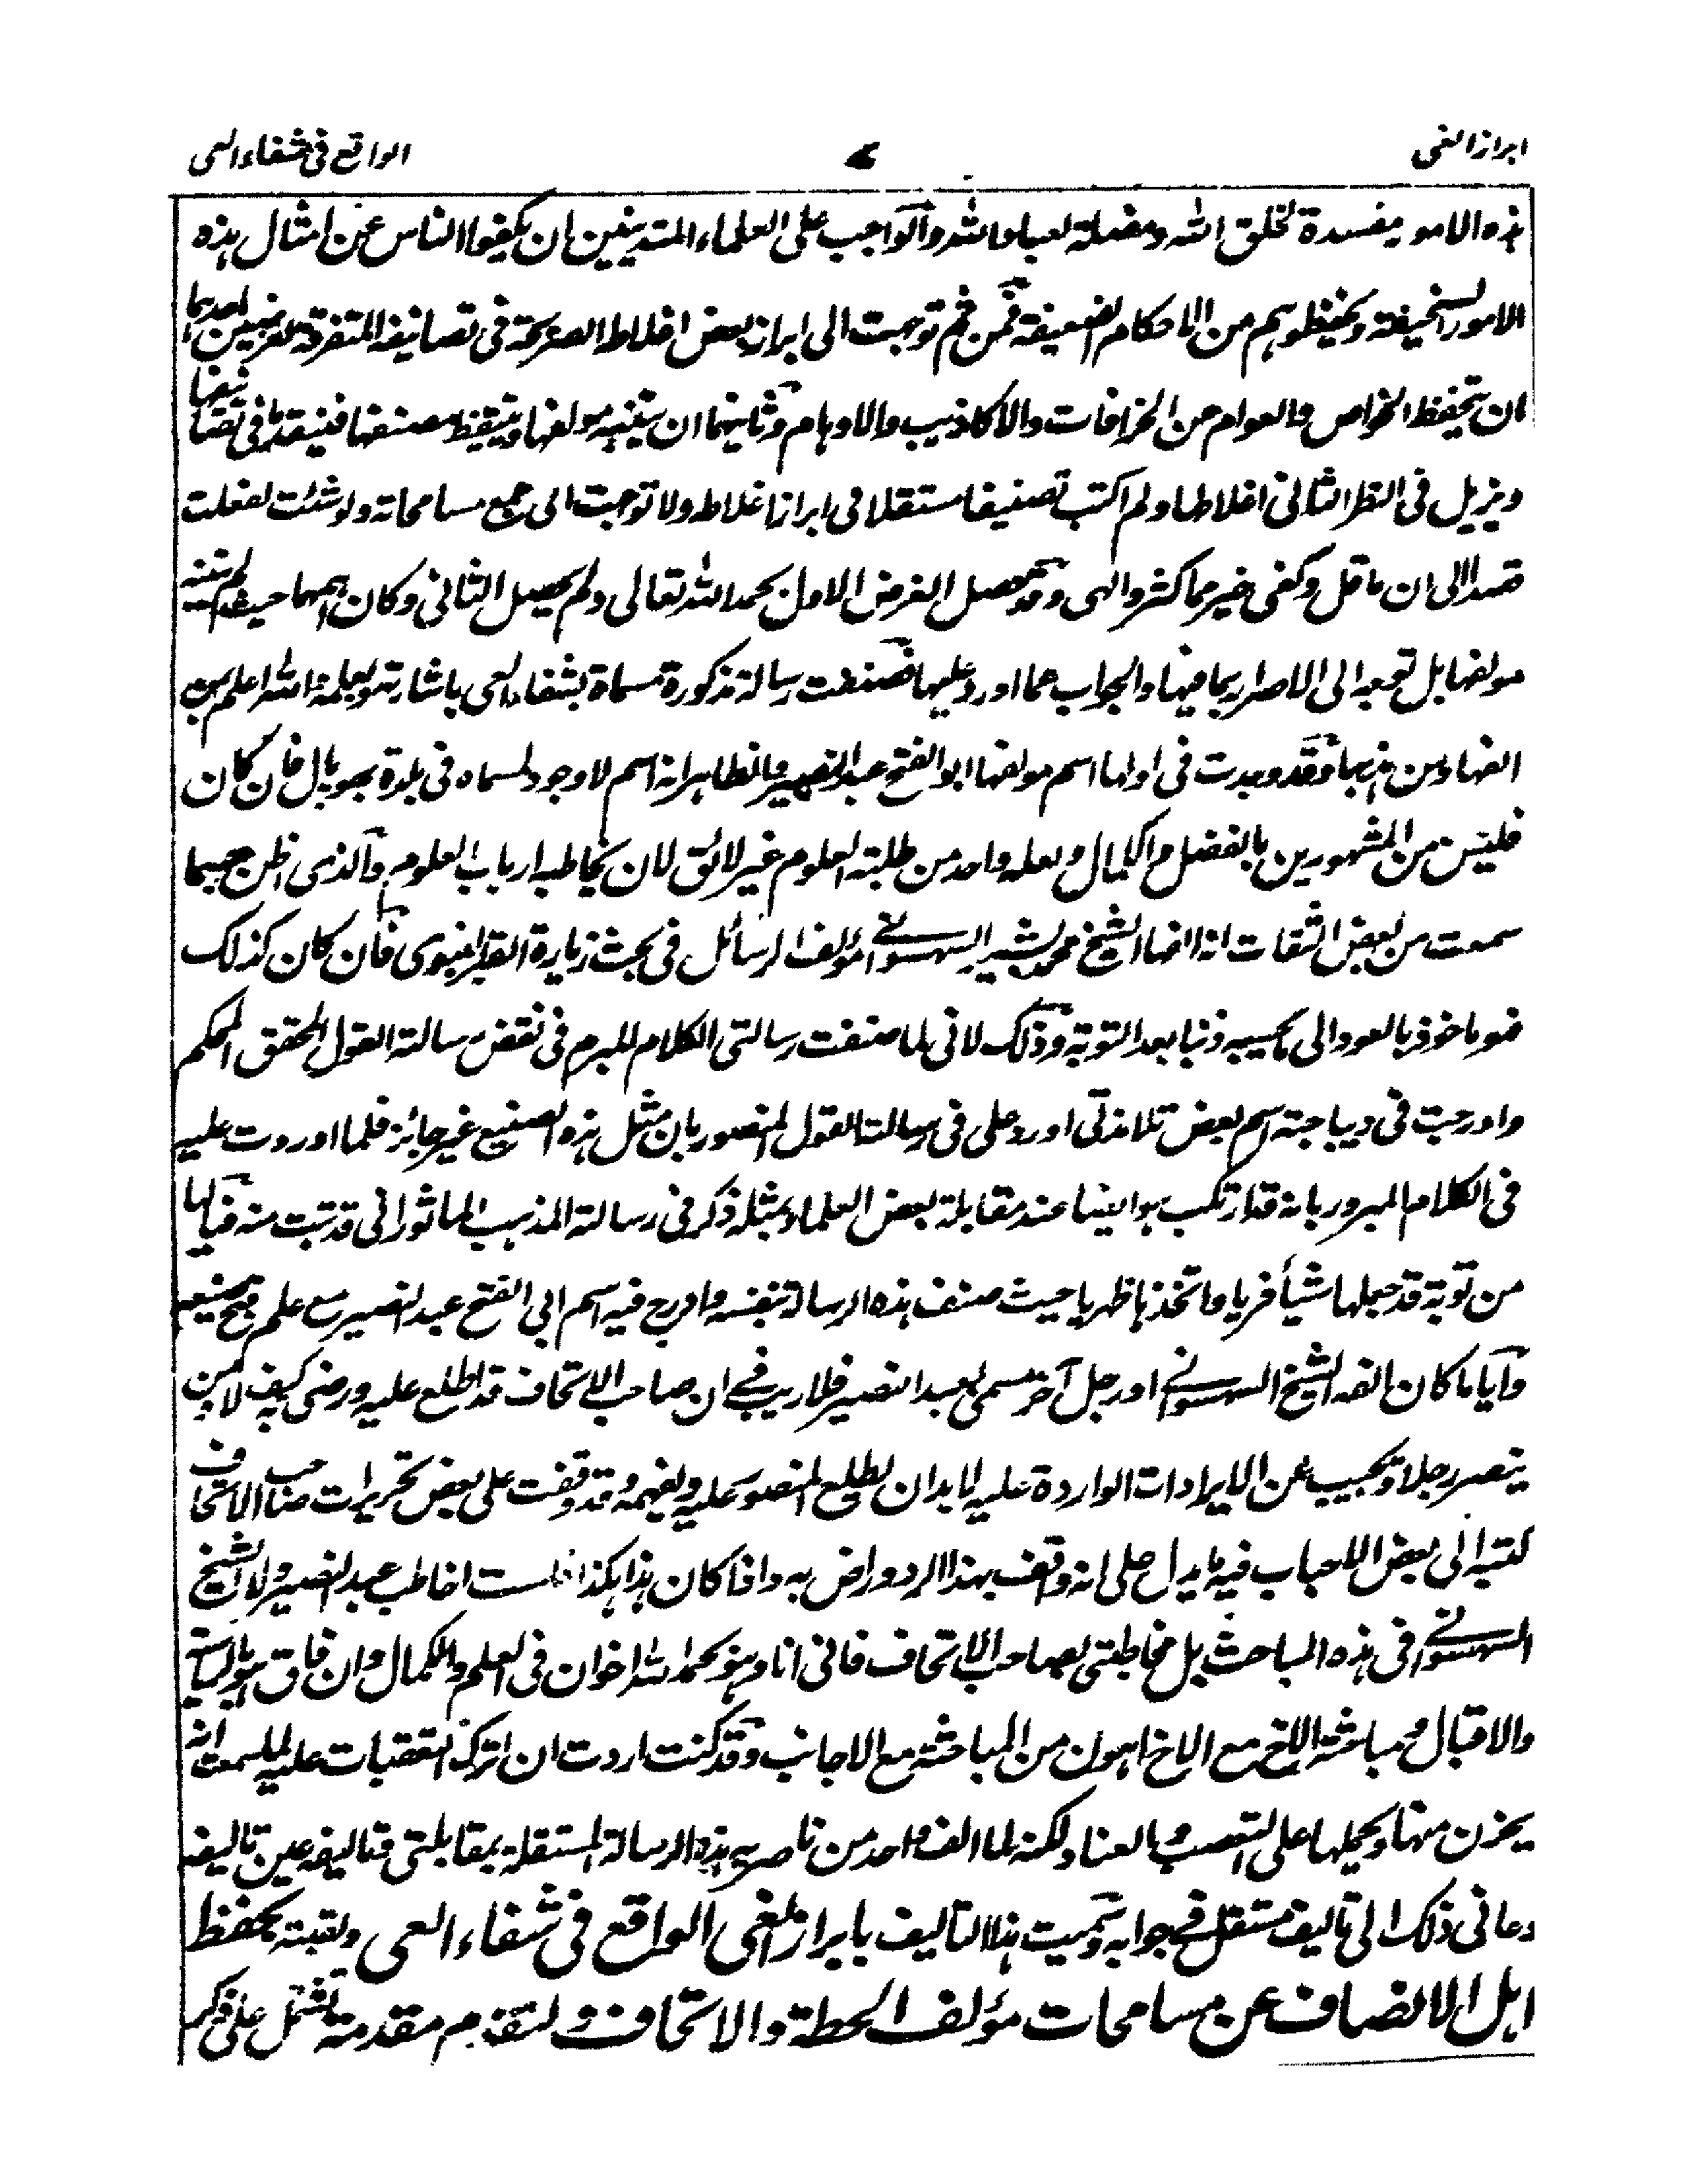 ابراز الغي ٤ الواقع في شفاء العي
هذه الامور مفسدة لخلق الله ومضلة لعباد الله والواجب على العلماء المتدينين ان يكفوا الناس عن امثال هذه
الامور السخيفة ويحفظوهم من الاحكام الضعيفة فمن ثم توجهت الى ابراز بعض اغلاطه الصريحة في تصانيفه المتفرقة لغرضين احدهما
ان يتحفظ الخواص والعوام عن الخرافات والاكاذيب والاوهام وثانيهما ان يتنبه مولفها ويتيقظ مصنفها فينقدها في تصانيفها
ويزيل في النظر الثاني اغلاطها ولم اكتب تصنيفا مستقلا في ابراز اغلاطه ولا توجهت الى جمع مسامحاته ولو شئت لفعلت
قصدا الى ان ما قل وكفى خير مما كثر والهى وقد حصل الغرض الاول بحمد الله تعالى ولم يحصل الثاني وكان اهمهما حيث لم يتنبه
مولفها بل توجه الى الاصرار بما فيها والجواب عما اورد عليها فصنفت رسالة مذكورة مسماة بشفاء العي باشارته وبعلمه الله اعلم من
الفها ومن هذبها فقد وجدت في اولها اسم مولفها ابو الفتح عبد النصير والظاهر انه اسم لا وجود لمسماه في بلدة بهوبال فان كان
فليس من المشهورين بالفضل والكمال ولعله واحد من طلبة العلوم غير لائق لان يخاطب ارباب العلوم والذي اظن حسبما
سمعت من بعض الثقات انه الفها الشيخ محمد بشير السهسواني مؤلف الرسائل في بحث زيارة القبر النبوي فان كان كذلك
فهو ماخوذ بالعود الى ما يحسبه ذنبا بعد التوبة وذلك لاني لما صنفت رسالتي الكلام المبرم في نقض رسالته القول المحقق المحكم
وادرجت في ديباجته اسم بعض تلامذتي اورد علي في رسالته القول المنصور بان مثل هذه الصنيع غير جائز فلما اوردت عليه
في الكلام المبرور بانه قد ارتكب هو ايضا عند مقابلة بعض العلماء بمثله ذكر في رسالته المذهب الماثور اني قد تبت منه فيا لها
من توبة قد جعلها شيأ فريا واتخذها ظهريا حيث صنف هذه الرسالة بنفسه وادرج فيه اسم ابي الفتح عبد النصير مع علم قبح صنيعه
وايا ما كان الفه الشيخ السهسواني او رجل آخر مسمى بعبد النصير فلا ريب في ان صاحب الاتحاف قد اطلع عليه ورضي كيف لا ومن
ينصر رجلا ويجيب عن الايرادات الواردة عليه لا بد ان يطلع المنصور عليه ويفهمه وقد وقفت على بعض تحريرات صاحب الاتحاف
كتبه الى بعض الاحباب فيه ما يدل على انه واقف بهذا الرد وراض به واذا كان هذا هكذا فلست اخاطب عبد النصير ولا الشيخ
السهسواني في هذه المباحث بل مخاطبتي بصاحب الاتحاف فاني انا وهو بحمد الله اخوان في العلم والكمال وان فاق هو بالرياسة
والاقبال ومباحثة الاخ مع الاخ اهون من المباحثة مع الاجانب وقد كنت اردت ان اترك التعقبات عليه لما سمعت انه
يحزن منها ويحملها على التعصب والعناد لكنه لما الف واحد من ناصريه هذه الرسالة المستقلة بمقابلتي فتاليفه عين تاليفه
دعاني ذلك الى تاليف مستقل في جوابه وسميت هذا التاليف بابراز الغي الواقع في شفاء العي ولقبته بحفظ
اهل الانصاف عن مسامحات مؤلف الحطة والاتحاف ولنقدم مقدمة تشتمل على ذكر